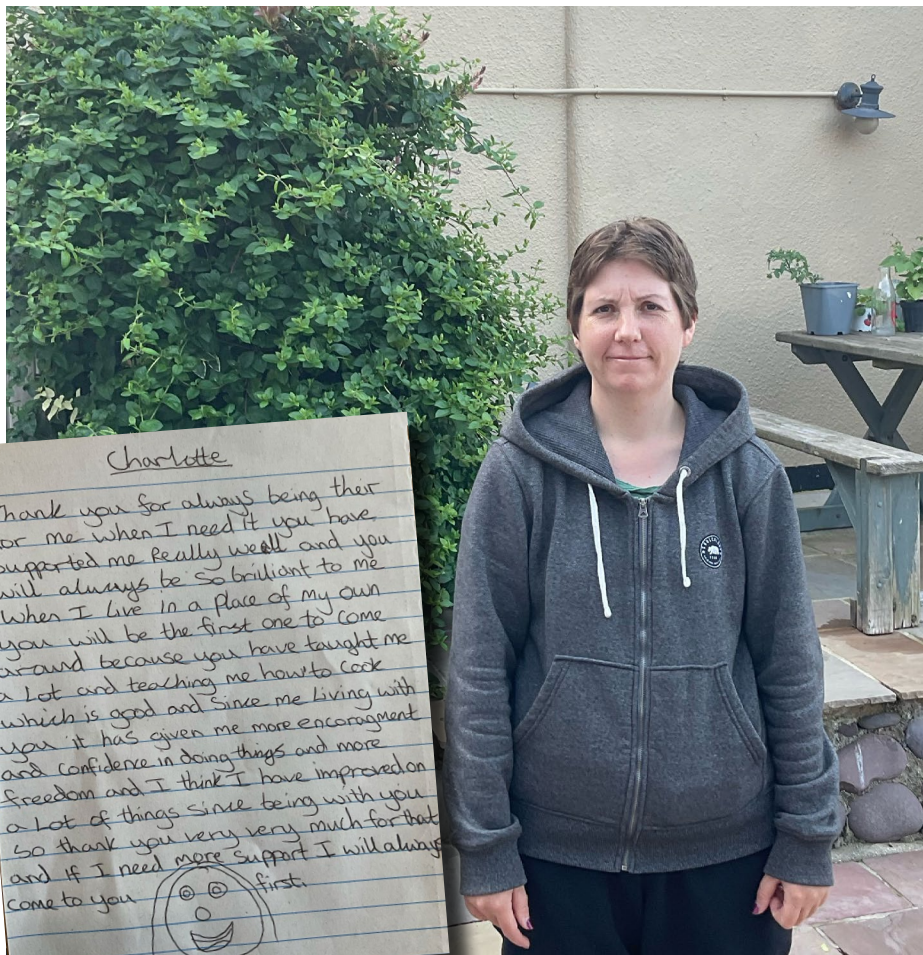 Charlotte
Thank you for always being their
for me when I need it you have
supported me Really well and you
will always be so brilliant to me
when I live in a place of my own
you will be the first one to come
around because you have taught me
a lot and teaching me how to cook
which is good and since me living with
you it has given me more encoragment
and confidence in doing things and more
freedom and I think I have improved on
a lot of things since being with you
so thank you very very much for that
and if I need more support I will always
come to you first.